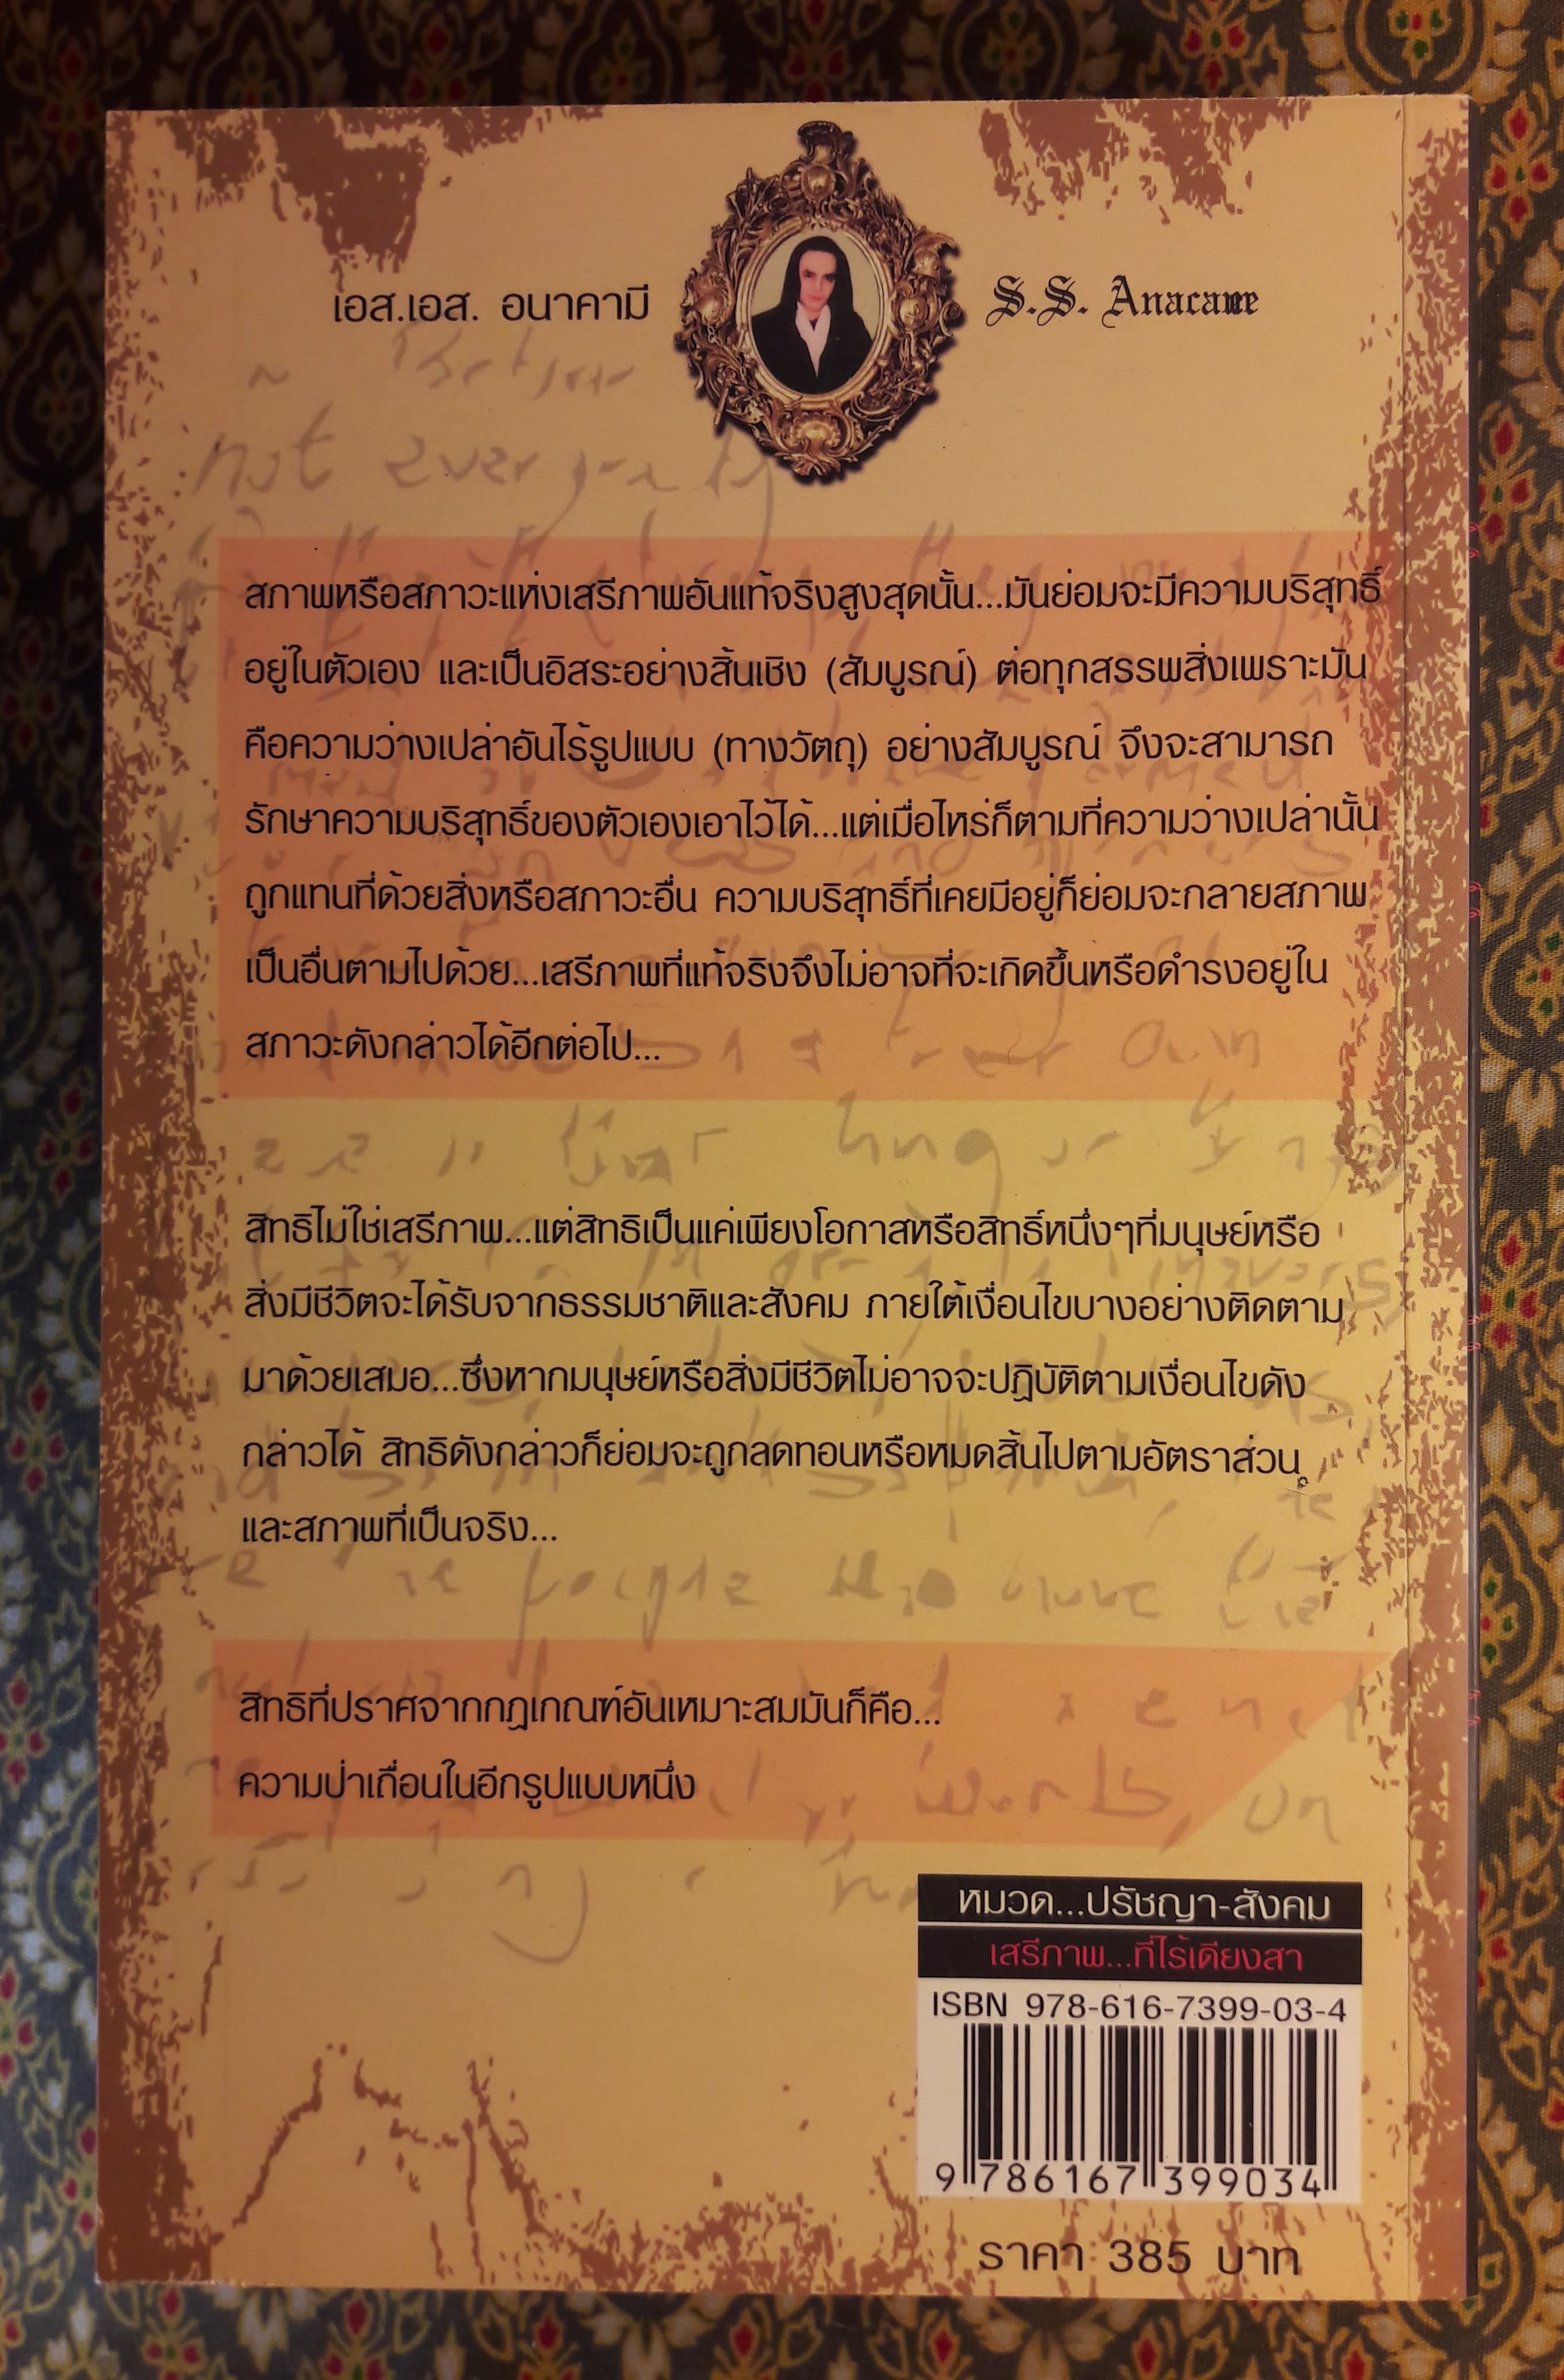 เอส.เอส. อนาคามี
S.S. Anacame
สภาพหรือสภาวะแห่งเสรีภาพอันแท้จริงสูงสุดนั้น...มันย่อมจะมีความบริสุทธิ์
อยู่ในตัวเอง และเป็นอิสระอย่างสิ้นเชิง (สัมบูรณ์) ต่อทุกสรรพสิ่งเพราะมัน
คือความว่างเปล่าอันไร้รูปแบบ (ทางวัตถุ) อย่างสัมบูรณ์ จึงจะสามารถ
รักษาความบริสุทธิ์ของตัวเองเอาไว้ได้...แต่เมื่อไหร่ก็ตามที่ความว่างเปล่านั้น
ถูกแทนที่ด้วยสิ่งหรือสภาวะอื่น ความบริสุทธิ์ที่เคยมีอยู่ก็ย่อมจะกลายสภาพ
เป็นอื่นตามไปด้วย...เสรีภาพที่แท้จริงจึงไม่อาจที่จะเกิดขึ้นหรือดำรงอยู่ใน
สภาวะดังกล่าวได้อีกต่อไป...
สิทธิไม่ใช่เสรีภาพ...แต่สิทธิเป็นแค่เพียงโอกาสหรือสิทธิ์หนึ่งๆที่มนุษย์หรือ
สิ่งมีชีวิตจะได้รับจากธรรมชาติและสังคม ภายใต้เงื่อนไขบางอย่างติดตาม
มาด้วยเสมอ...ซึ่งหากมนุษย์หรือสิ่งมีชีวิตไม่อาจจะปฏิบัติตามเงื่อนไขดัง
กล่าวได้ สิทธิดังกล่าวก็ย่อมจะถูกลดทอนหรือหมดสิ้นไปตามอัตราส่วน
และสภาพที่เป็นจริง...
สิทธิที่ปราศจากกฎเกณฑ์อันเหมาะสมมันก็คือ...
ความป่าเถื่อนในอีกรูปแบบหนึ่ง
หมวด...ปรัชญา-สังคม
เสรีภาพ...ที่ไร้เดียงสา
ISBN 978-616-7399-03-4
9 786167 399034
ราคา 385 บาท